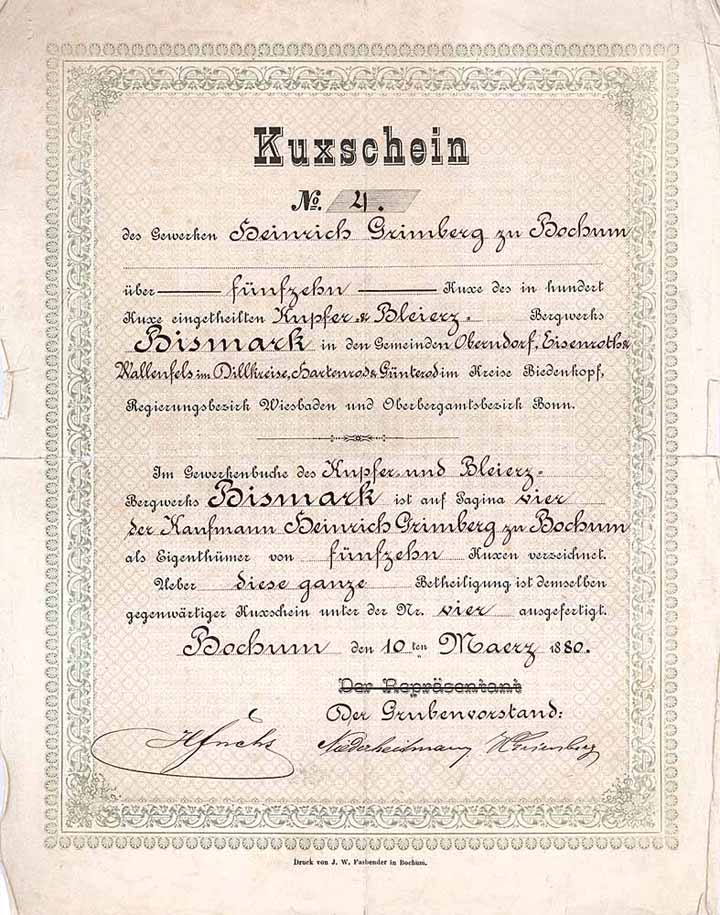 Kuxschein
No. 4.
des Gewerken Heinrich Grimberg zu Bochum
über fünfzehn Kuxe des in hundert
Kuxe eingetheilten Kupfer & Bleierz- Bergwerks
Bismark in den Gemeinden Oberndorf, Eisenroth &
Wallenfels im Dillkreise, Hartenrod & Günterod im Kreise Biedenkopf,
Regierungsbezirk Wiesbaden und Oberbergamtsbezirk Bonn.
Im Gewerkenbuche des Kupfer und Bleierz-
Bergwerks Bismark ist auf Pagina vier
der Kaufmann Heinrich Grimberg zu Bochum
als Eigenthümer von fünfzehn Kuxen verzeichnet.
Ueber diese ganze Betheiligung ist demselben
gegenwärtiger Kuxschein unter der Nr. vier ausgefertigt.
Bochum den 10ten Maerz 1880.
Der Repräsentant
Der Grubenvorstand:
HFuchs Niederheitmann
Druck von J. W. Fasbender in Bochum.